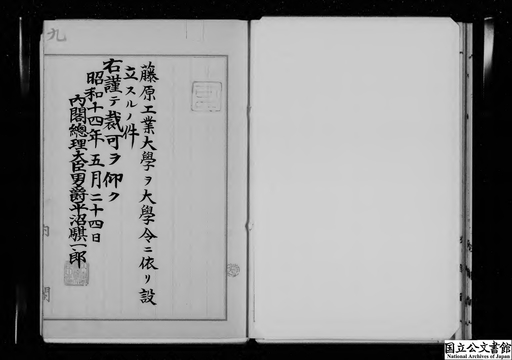 藤原工業大學ヲ大學令ニ依リ設
立スルノ件
右謹テ裁可ヲ仰ク
昭和十四年五月二十四日
內閣總理大臣男爵平沼騏一郎
九
內
閣
国立公文書館
National Archives of Japan